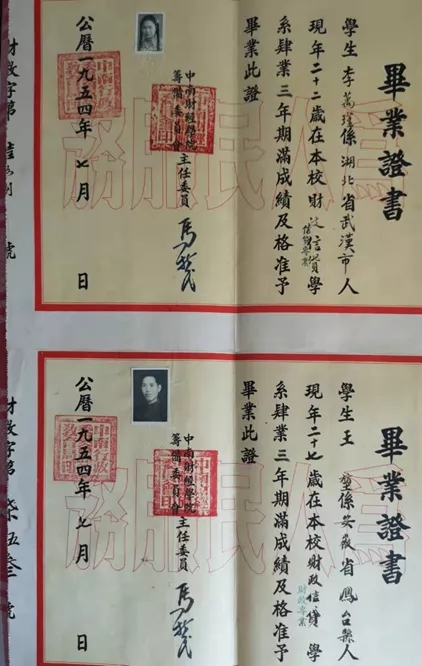 畢業證書
學生李萬瑾係湖北省武漢市人
現年二十二歲在本校財政信貸學
信貸專業
系肄業三年期滿成績及格准予
畢業此證
中南財經學院
籌備委員會
主任委員
公曆一九五四年七月
日
財政字第
號
為人民服務
畢業證書
學生王
係安徽省鳳台縣人
現年二十七歲在本校財政信貸學
財政專業
系肄業三年期滿成績及格准予
畢業此證
中南財經學院
籌備委員會
主任委員
公曆一九五四年七月
日
財政字第柒伍叁號
為人民服務